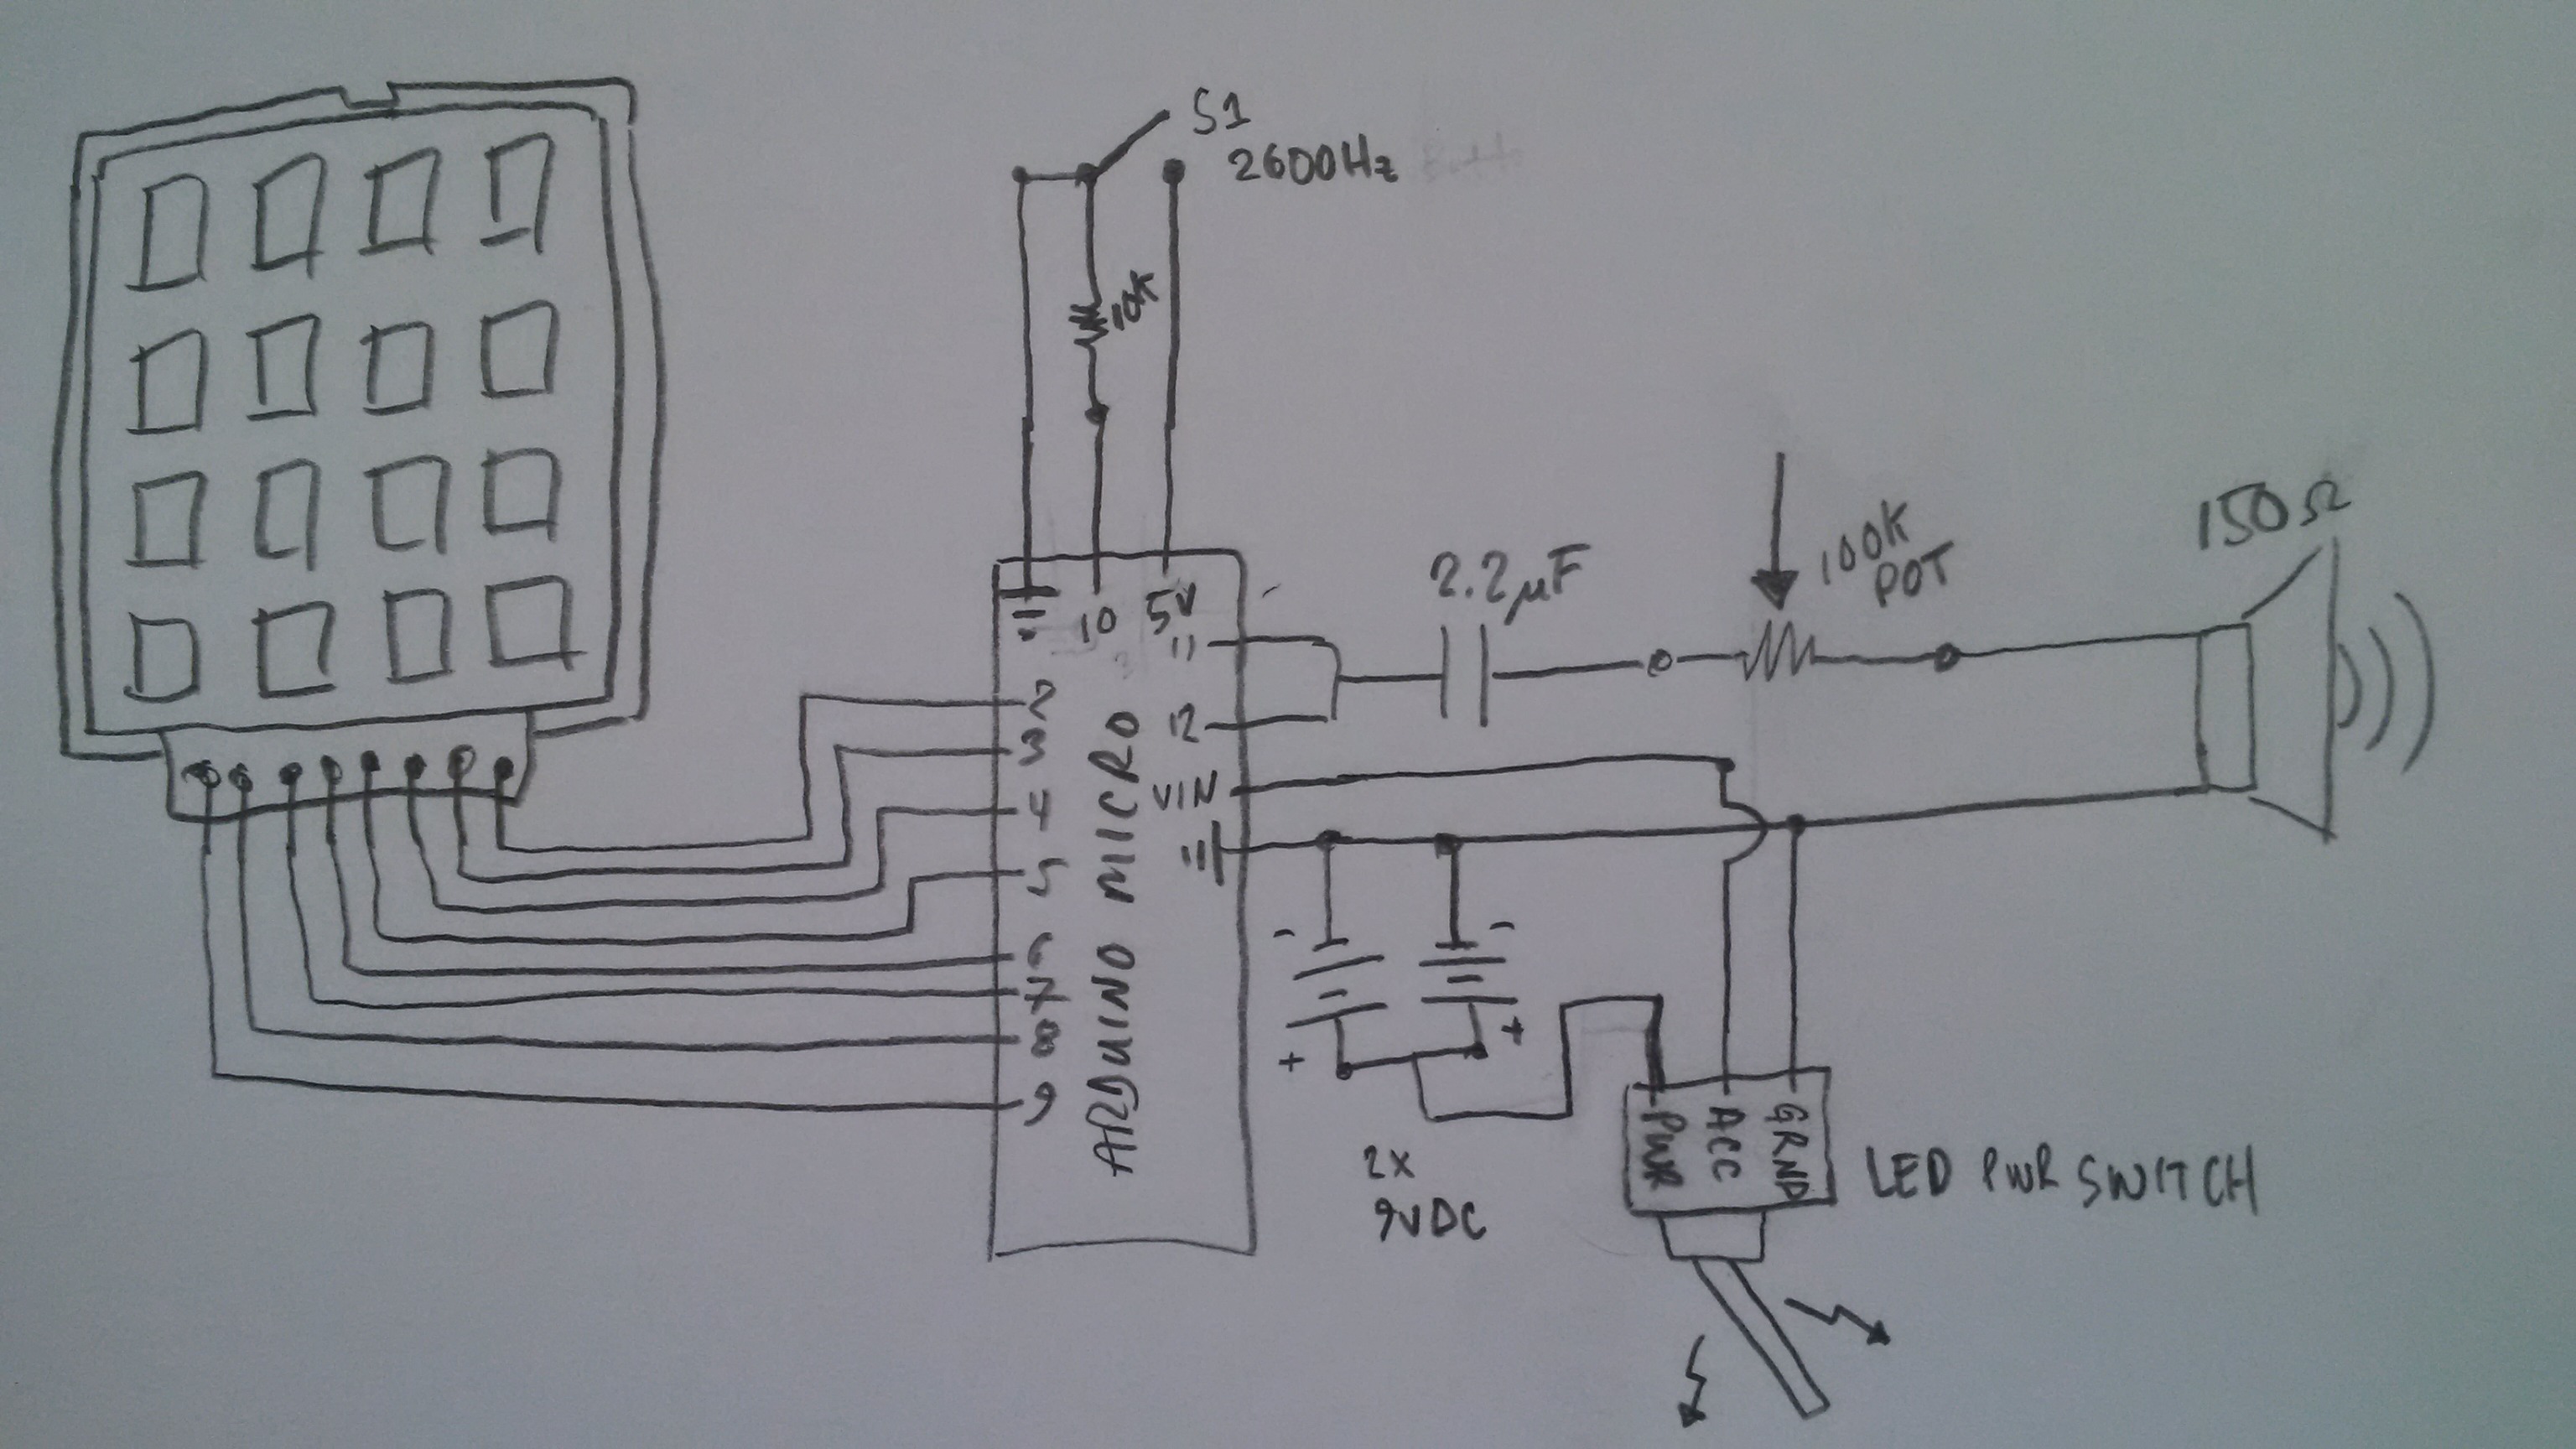 S1
2600Hz
10K
10
5V
11
12
VIN
2
3
4
5
6
7
8
9
ARDUINO MICRO
2.2µF
100K
POT
150Ω
-
-
+
+
2X
9VDC
PWR
ACC
GRND
LED PWR SWITCH